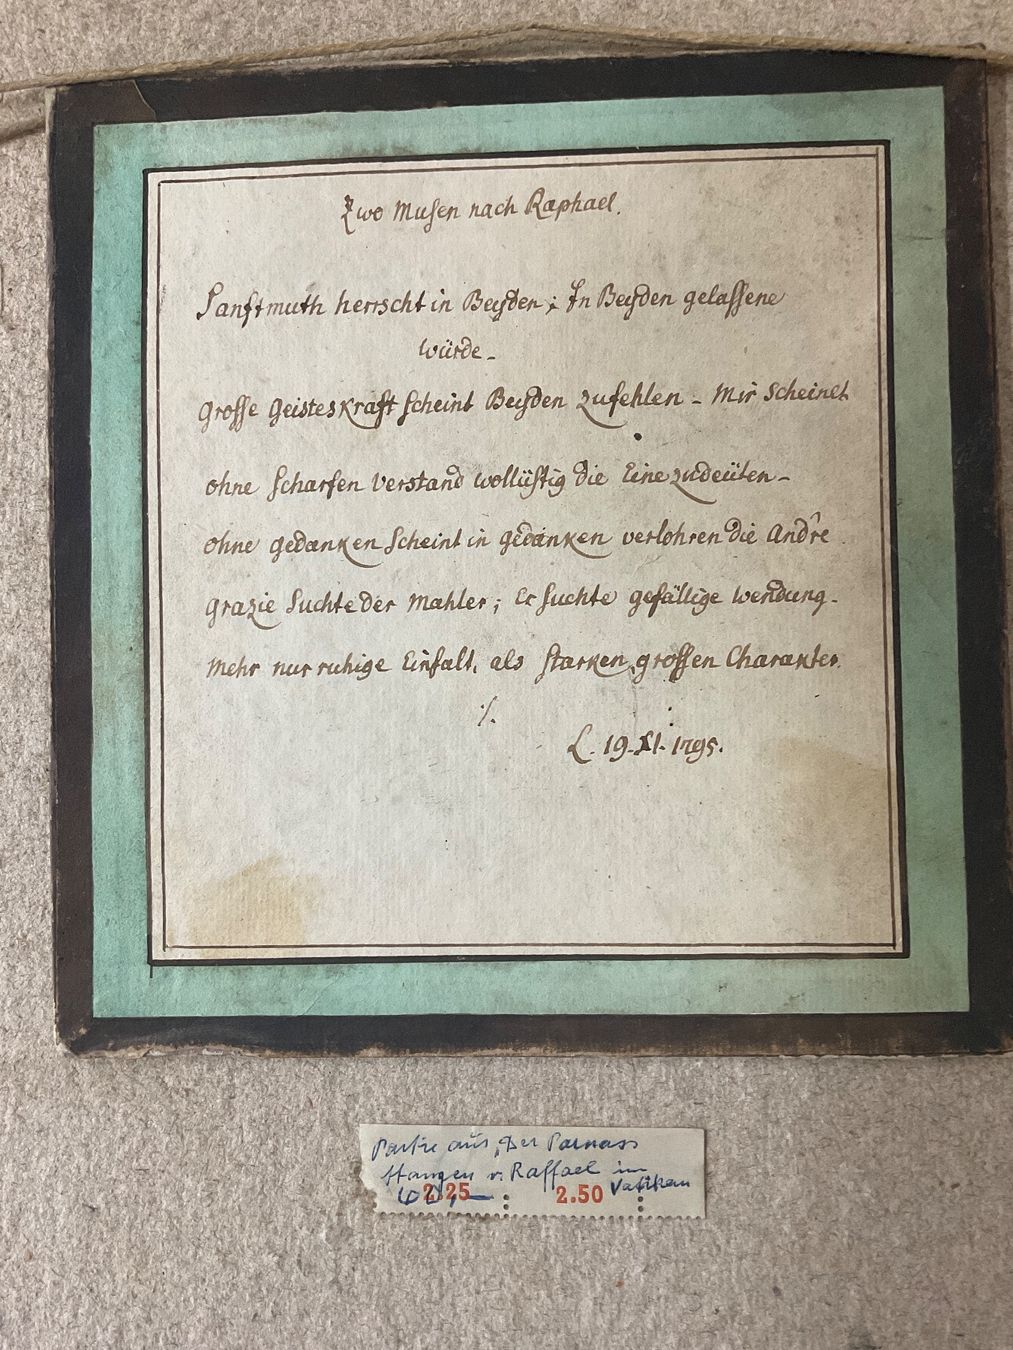 Zwo Musen nach Raphael.
Sanftmuth herrscht in Beyden; In Beyden gelassene
würde_
Grosse Geisteskraft scheint Beyden zufehlen _ Mir scheinet
ohne scharfen Verstand wollüstig die Eine zudeüten_
ohne gedanken scheint in gedanken verlohren die Andre
Grazie suchte der Mahler; Er suchte gefällige wendung_
Mehr nur ruhige Einfalt, als starken, grossen Charakter.
./.
L. 19. XI. 1795.
Partie aus Der Parnass
v. Raffael im
Vatikan
2.25 2.50